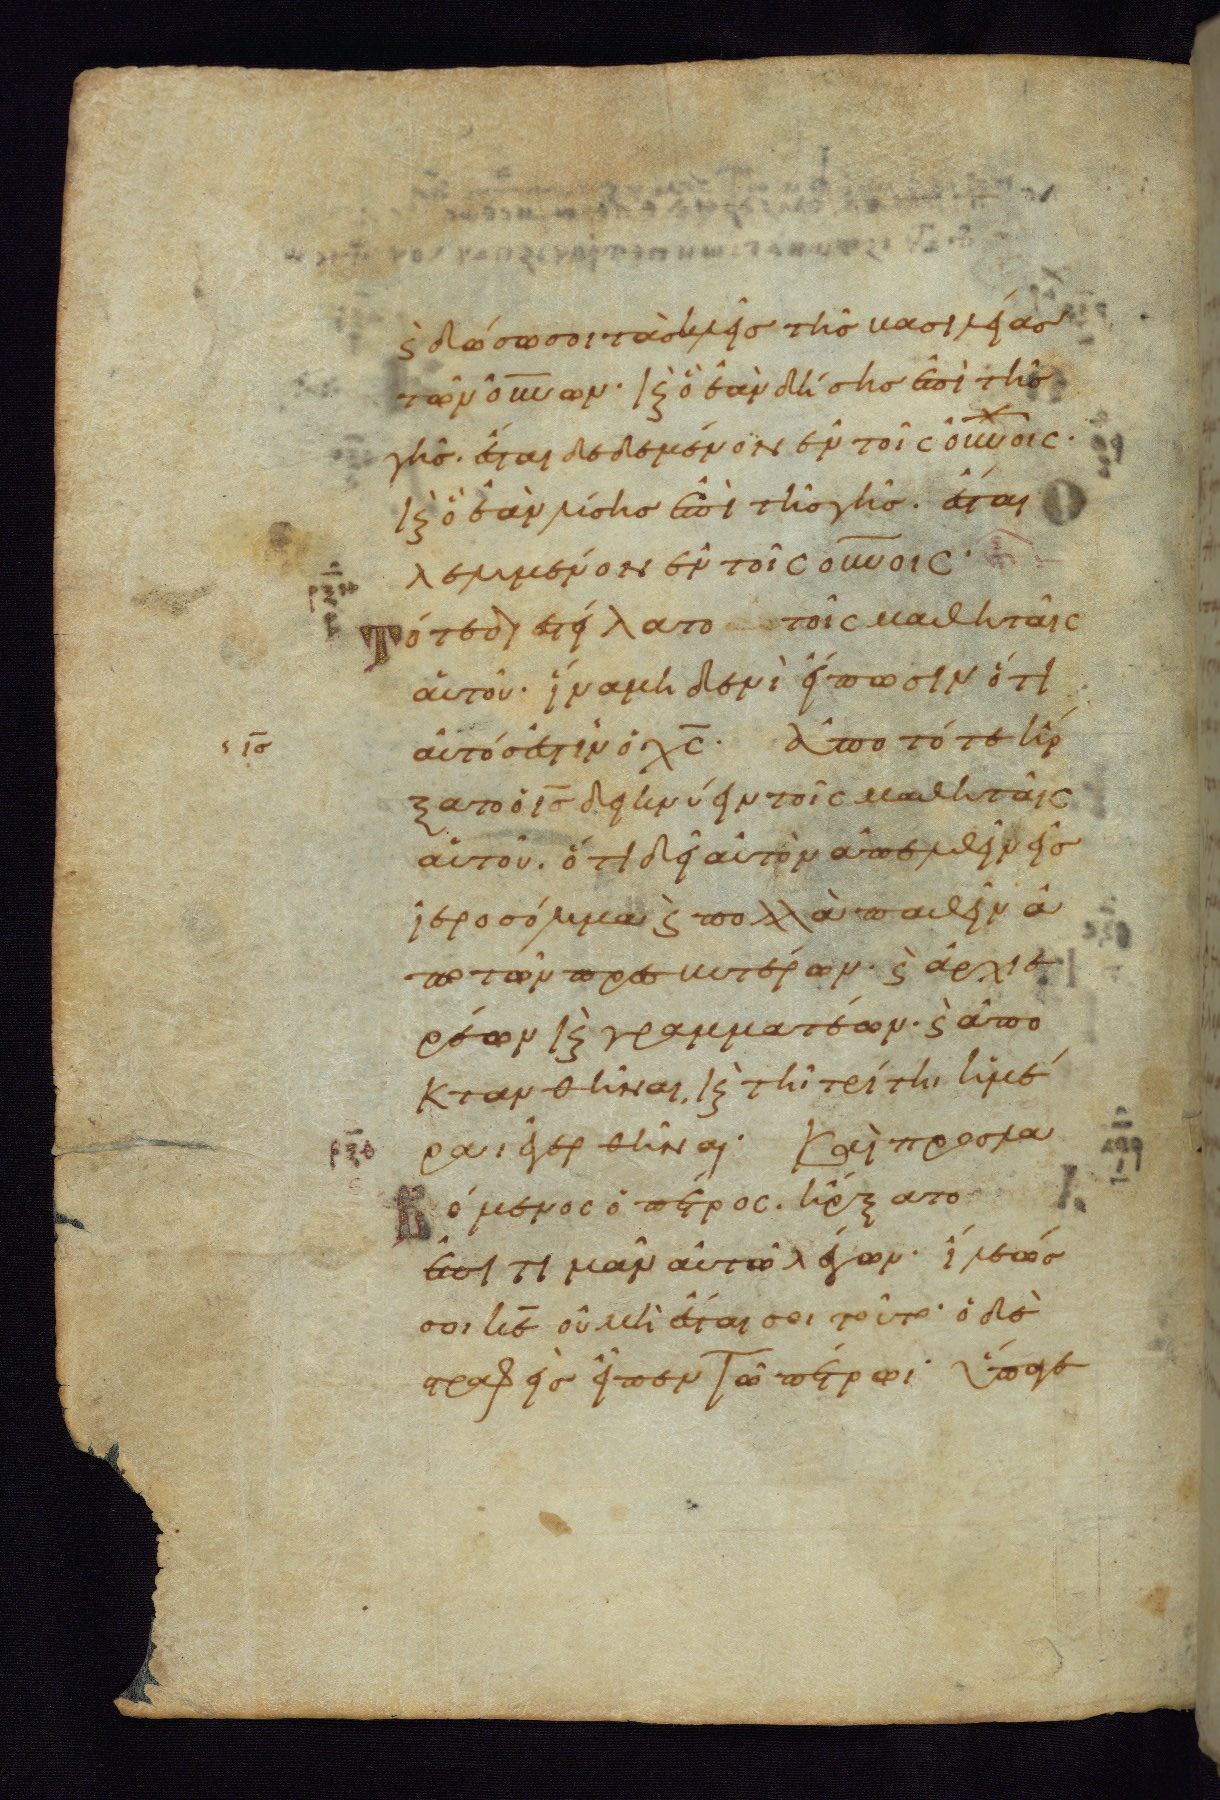 ϛ δώσω σοι τὰς κλεῖς τῆς βασιλείας
τῶν ουνων· κ ὃ ἐὰν δήσης ἐπὶ τῆς
γῆς. ἔσται δεδεμένον ἐν τοῖς ουνοις·
κ ὃ ἐὰν λύσης ἐπὶ τῆς γῆς. ἔσται
λελυμένον ἐν τοῖς ουνοις·
ρξζ
Τότε διεστείλατο τοῖς μαθηταῖς
αὐτοῦ· ἵνα μηδενὶ εἴπωσιν ὅτι
αὐτός ἐστιν ὁ χς· Ἀπο τότε ἤρ
ξατο ὁ ις δεικνύειν τοῖς μαθηταῖς
αὐτοῦ. ὅτι δεῖ αὐτὸν ἀπελθεῖν εἰς
ἱεροσόλυμα ϛ πολλὰ παθεῖν ἀ
πο τῶν πρεσβυτέρων· ϛ ἀρχιε
ρέων κ γραμματέων· ϛ ἀπο
κτανθῆναι, κ τῆ τρίτηι ἡμέ
ραι ἐγερθῆναι· Καὶ προσλα
βόμενος ὁ πέτρος. ἤρξατο
ἐπιτιμᾶν αὐτῶ λέγων· ἵλεώς
σοι κε οὐ μὴ ἔσται σοι τοῦτο· ὁ δὲ
στραφεὶς εἶπεν τῶ πέτρωι· ὕπαγε